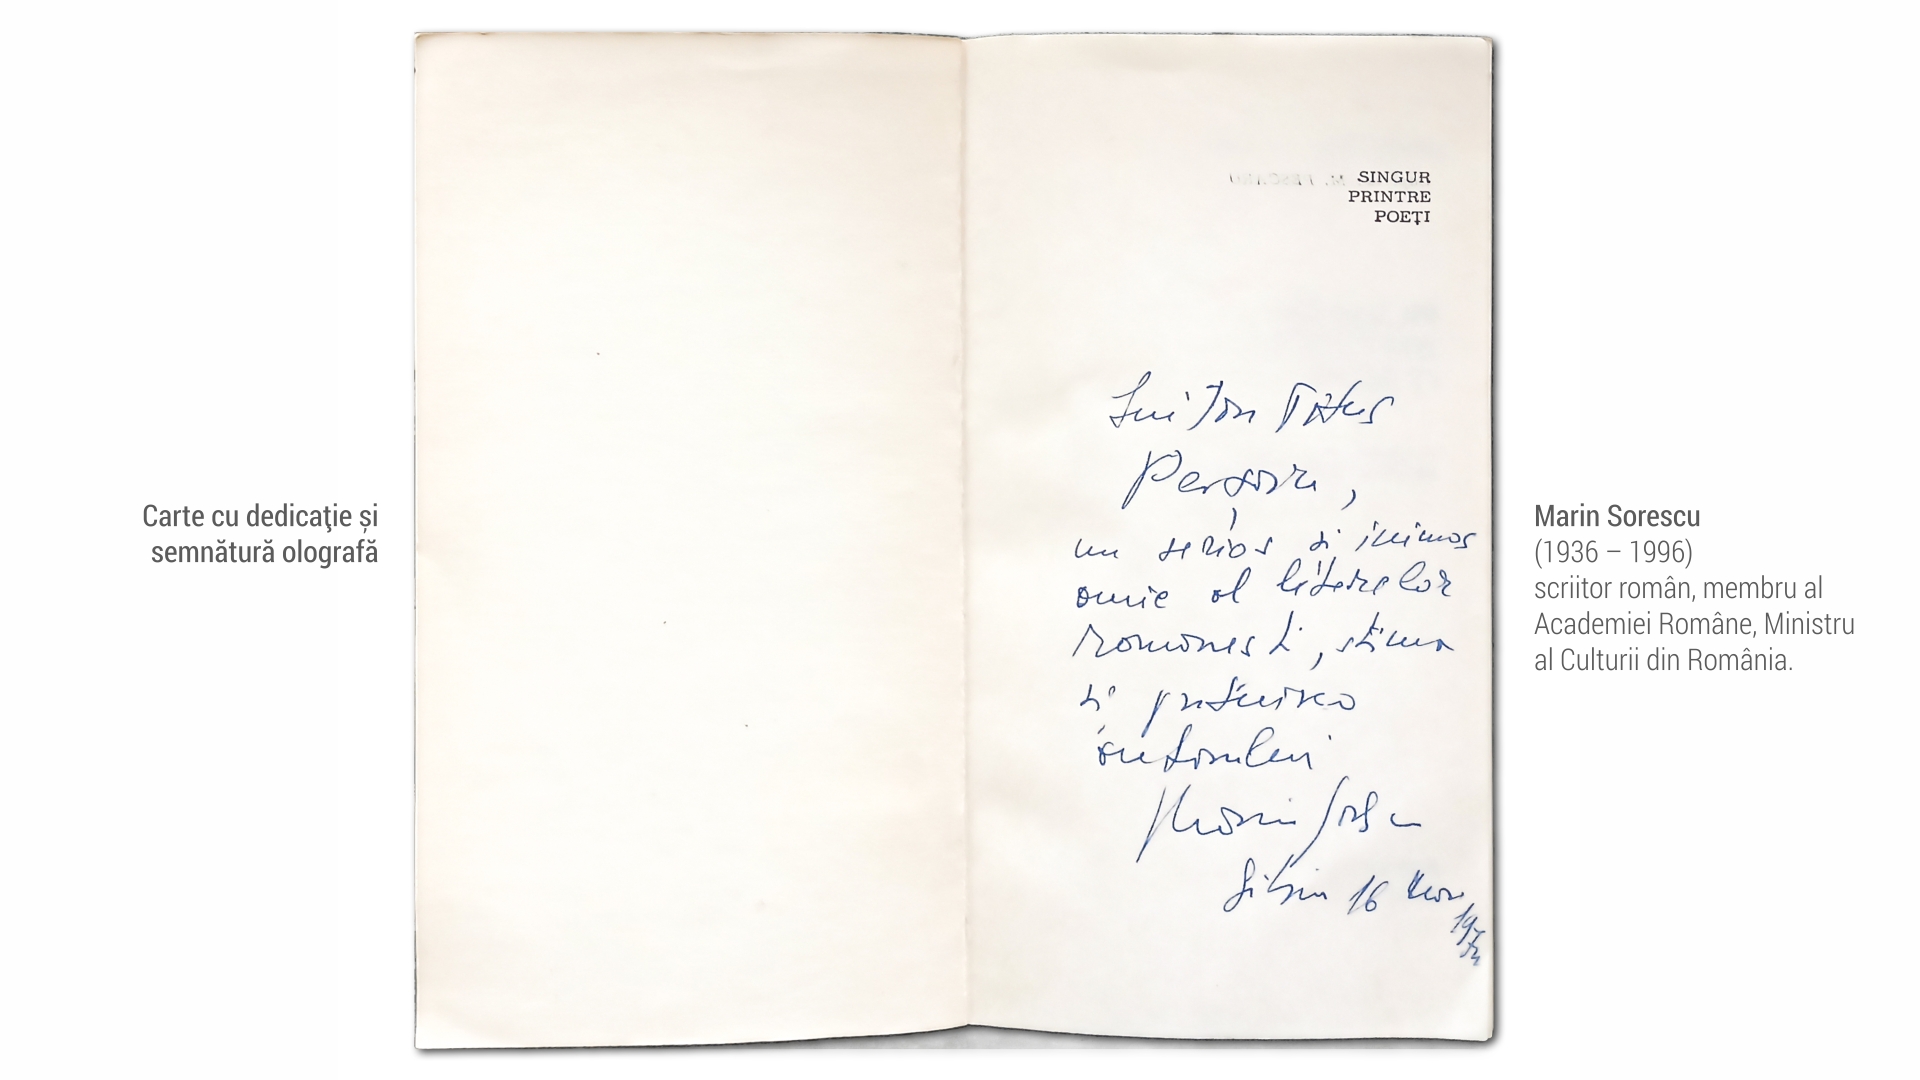 Carte cu dedicaţie și
semnătură olografă
SINGUR
PRINTRE
POEŢI
Lui Ion
un serios si inimos
amic al literelor
romanesti, stima
si
autorului
Marin Sorescu
Sibiu 16
Marin Sorescu
(1936 – 1996)
scriitor român, membru al
Academiei Române, Ministru
al Culturii din România.